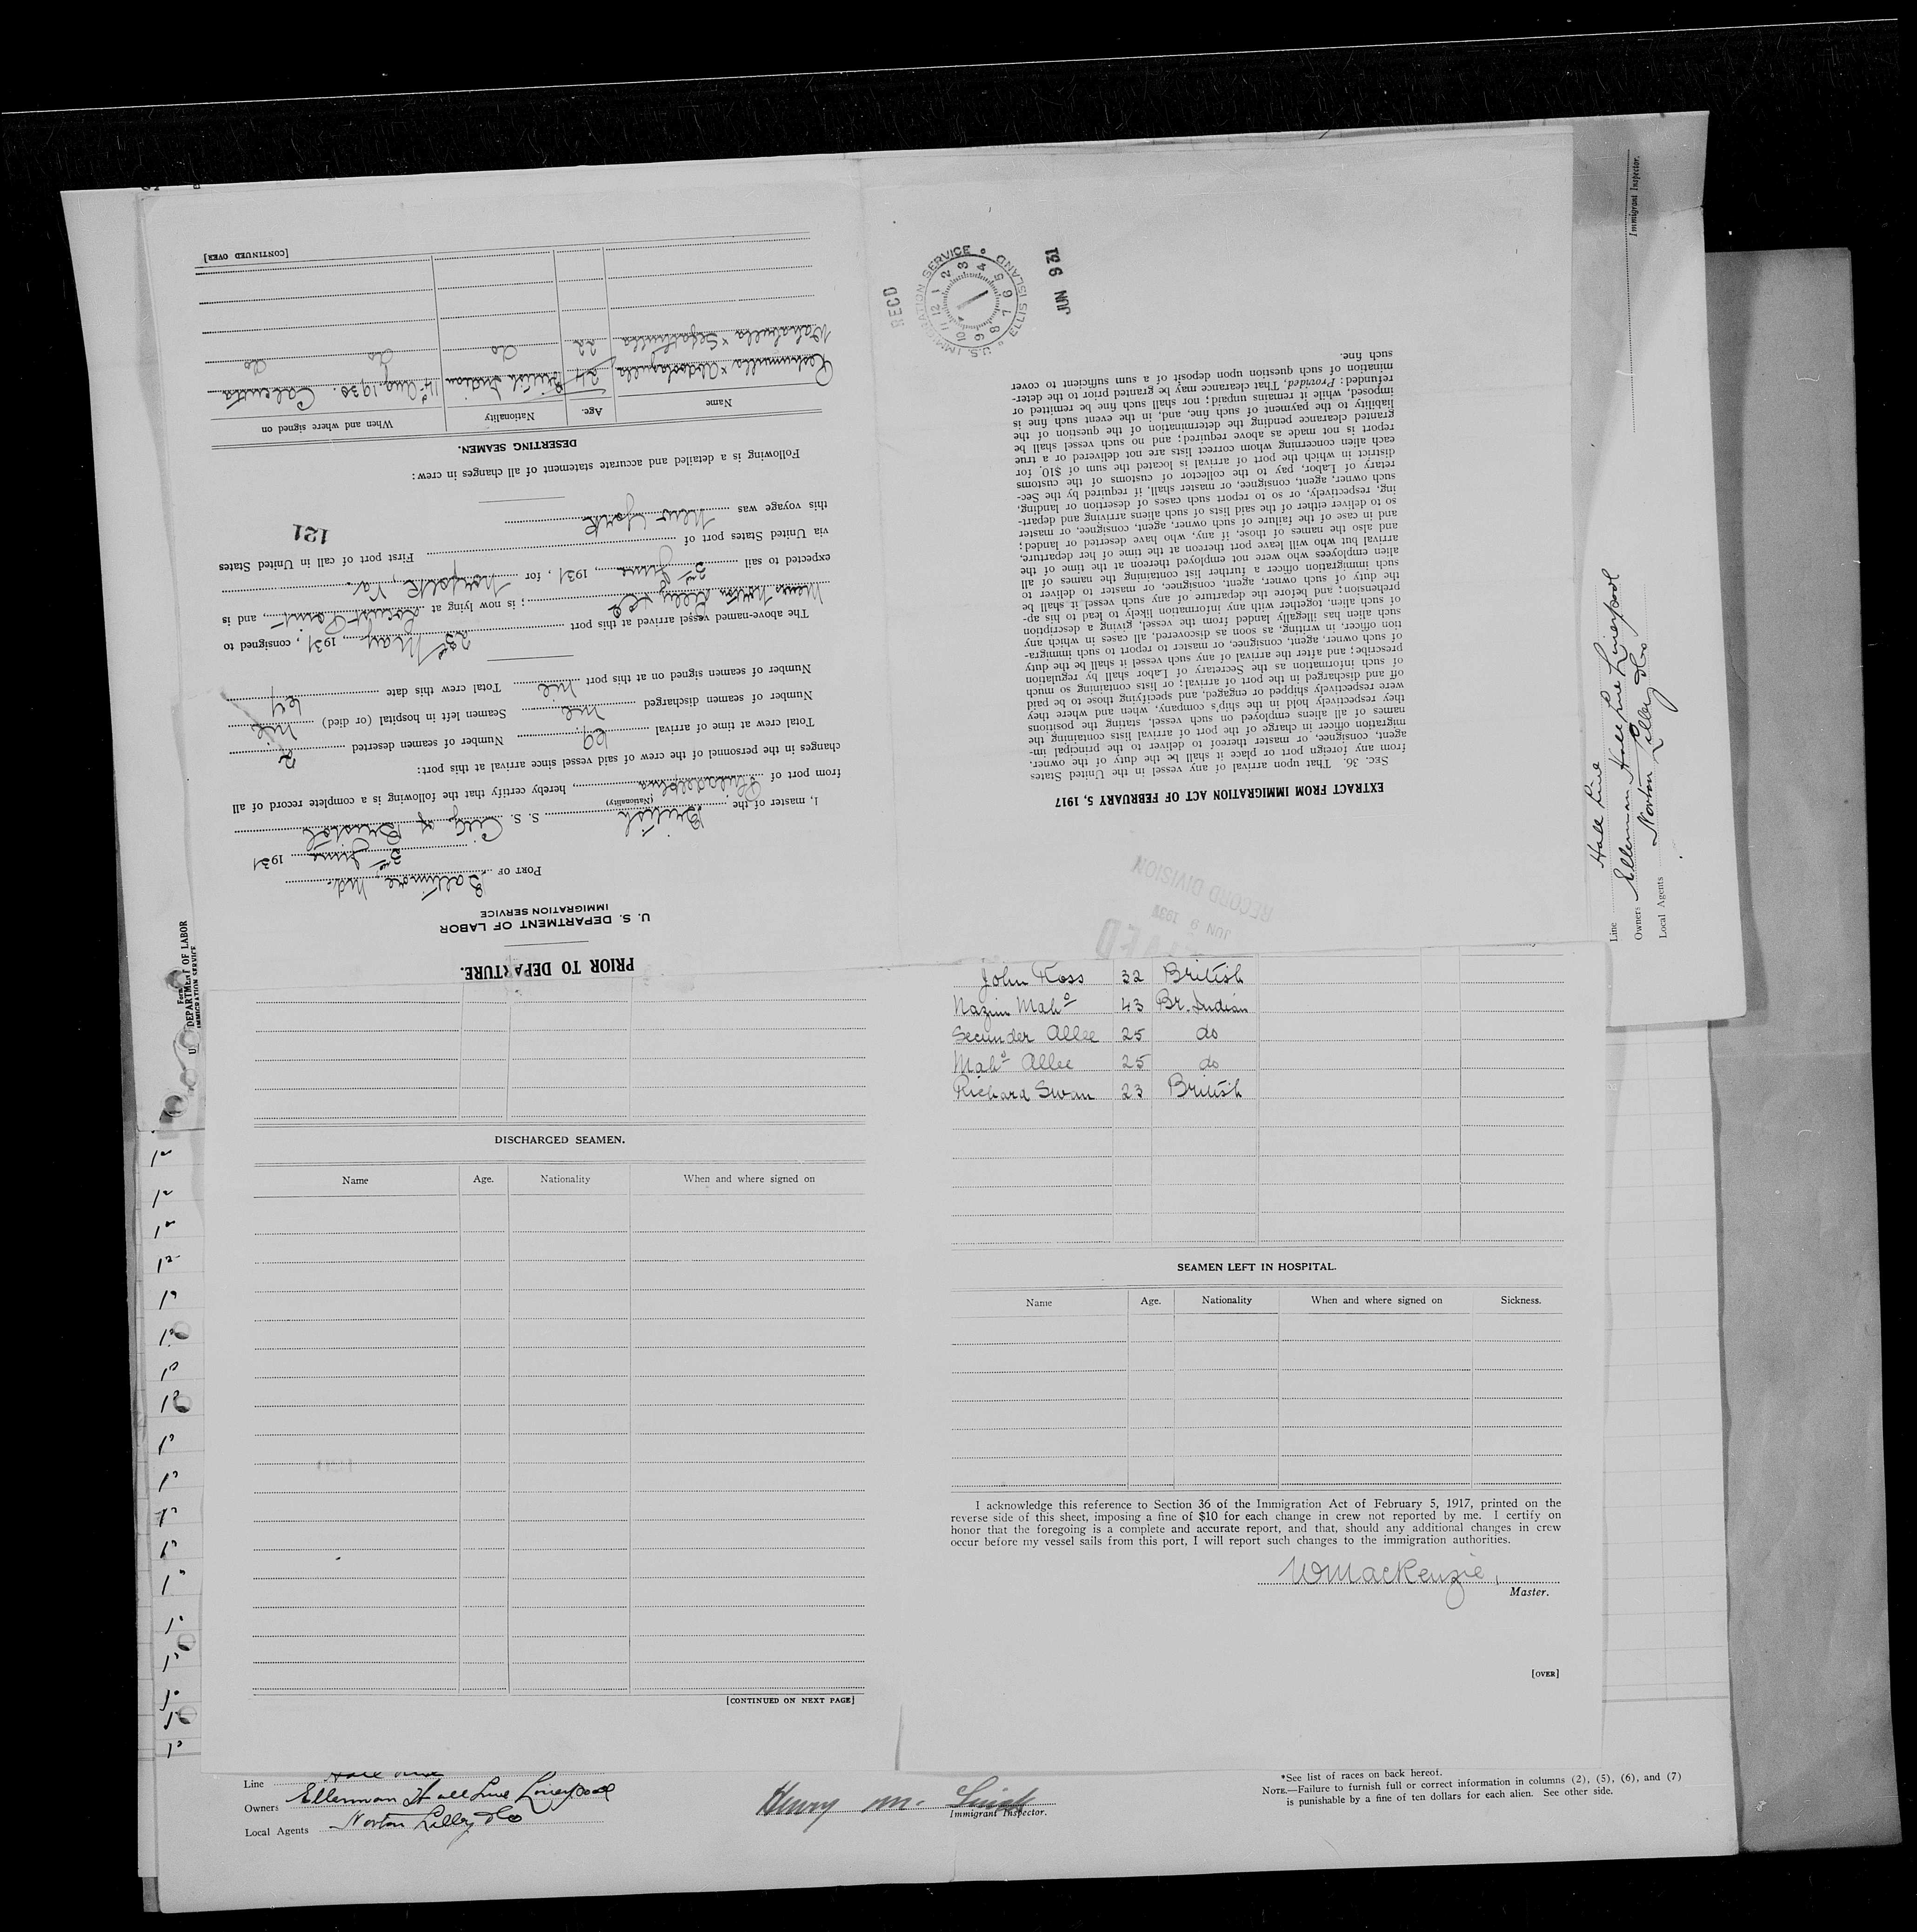 PRIOR TO DEPARTURE.
U. S. DEPARTMENT OF LABOR
IMMIGRATION SERVICE
PORT OF Baltimore, Md.
2nd June 1931
I, master of the British S. S. City of Bristol
(Nationality)
from port of Philadelphia, hereby certify that the following is a complete record of all
changes in the personnel of the crew of said vessel since arrival at this port:
Total crew at time of arrival 69 Number of seamen deserted 2
Number of seamen discharged nil Seamen left in hospital (or died) nil
Number of seamen signed on at this port nil Total crew this date 67
The above-named vessel arrived at this port May, 1931; consigned to
Norton Lilly & Co; is now lying at Locust Point, and is
expected to sail 2nd June, 1931, for Norfolk Va.
via United States port of First port of call in United States
this voyage was New York
121
Following is a detailed and accurate statement of all changes in crew:
DESERTING SEAMEN.
Name Age. Nationality When and where signed on
24 British Indian 14th Aug. 1930. Calcutta
22 do do do
[CONTINUED OVER]
RECD
U. S. IMMIGRATION SERVICE
ELLIS ISLAND
1 2 3 4 5 6 7 8 9 10 11 12
JUN 9 '31
EXTRACT FROM IMMIGRATION ACT OF FEBRUARY 5, 1917
SEC. 36. That upon arrival of any vessel in the United States
from any foreign port or place it shall be the duty of the owner,
agent, consignee, or master thereof to deliver to the principal im-
migration officer in charge of the port of arrival lists containing the
names of all aliens employed on such vessel, stating the positions
they respectively hold in the ship's company, when and where they
were respectively shipped or engaged, and specifying those to be paid
off and discharged in the port of arrival; or lists containing so much
of such information as the Secretary of Labor shall by regulation
prescribe; and after the arrival of any such vessel it shall be the duty
of such owner, agent, consignee, or master to report to such immigra-
tion officer, in writing, as soon as discovered, all cases in which any
such alien has illegally landed from the vessel, giving a description
of such alien, together with any information likely to lead to his ap-
prehension; and before the departure of any such vessel it shall be
the duty of such owner, agent, consignee, or master to deliver to
such immigration officer a further list containing the names of all
alien employees who were not employed thereon at the time of the
arrival but who will leave port thereon at the time of her departure,
and also the names of those, if any, who have deserted or landed;
and in case of the failure of such owner, agent, consignee, or master
so to deliver either of the said lists of such aliens arriving and depart-
ing, respectively, or so to report such cases of desertion or landing,
such owner, agent, consignee, or master shall, if required by the Sec-
retary of Labor, pay to the collector of customs of the customs
district in which the port of arrival is located the sum of $10. for
each alien concerning whom correct lists are not delivered or a true
report is not made as above required; and no such vessel shall be
granted clearance pending the determination of the question of the
liability to the payment of such fine, and, in the event such fine is
imposed, while it remains unpaid; nor shall such fine be remitted or
refunded: Provided, That clearance may be granted prior to the deter-
mination of such question upon deposit of a sum sufficient to cover
such fine.
JUN 9 1931
RECORD DIVISION
Immigrant Inspector.
Line Hall Line
Owners Ellerman Hall Line Liverpool
Local Agents Norton Lilly & Co
U. S. DEPARTMENT OF LABOR
IMMIGRATION SERVICE
DISCHARGED SEAMEN.
Name Age. Nationality When and where signed on
[CONTINUED ON NEXT PAGE]
John Ross 32 British
Nazim Mahd 43 Br. Indian
Secunder Allee 25 do
Mahd Allee 25 do
Richard Swan 23 British
SEAMEN LEFT IN HOSPITAL.
Name Age. Nationality When and where signed on Sickness.
I acknowledge this reference to Section 36 of the Immigration Act of February 5, 1917, printed on the
reverse side of this sheet, imposing a fine of $10 for each change in crew not reported by me. I certify on
honor that the foregoing is a complete and accurate report, and that, should any additional changes in crew
occur before my vessel sails from this port, I will report such changes to the immigration authorities.
W MacKenzie,
Master.
[OVER]
Line
Owners Ellerman Hall Line Liverpool
Local Agents Norton Lilly & Co
Henry M.
Immigrant Inspector.
*See list of races on back hereof.
NOTE.—Failure to furnish full or correct information in columns (2), (5), (6), and (7)
is punishable by a fine of ten dollars for each alien. See other side.